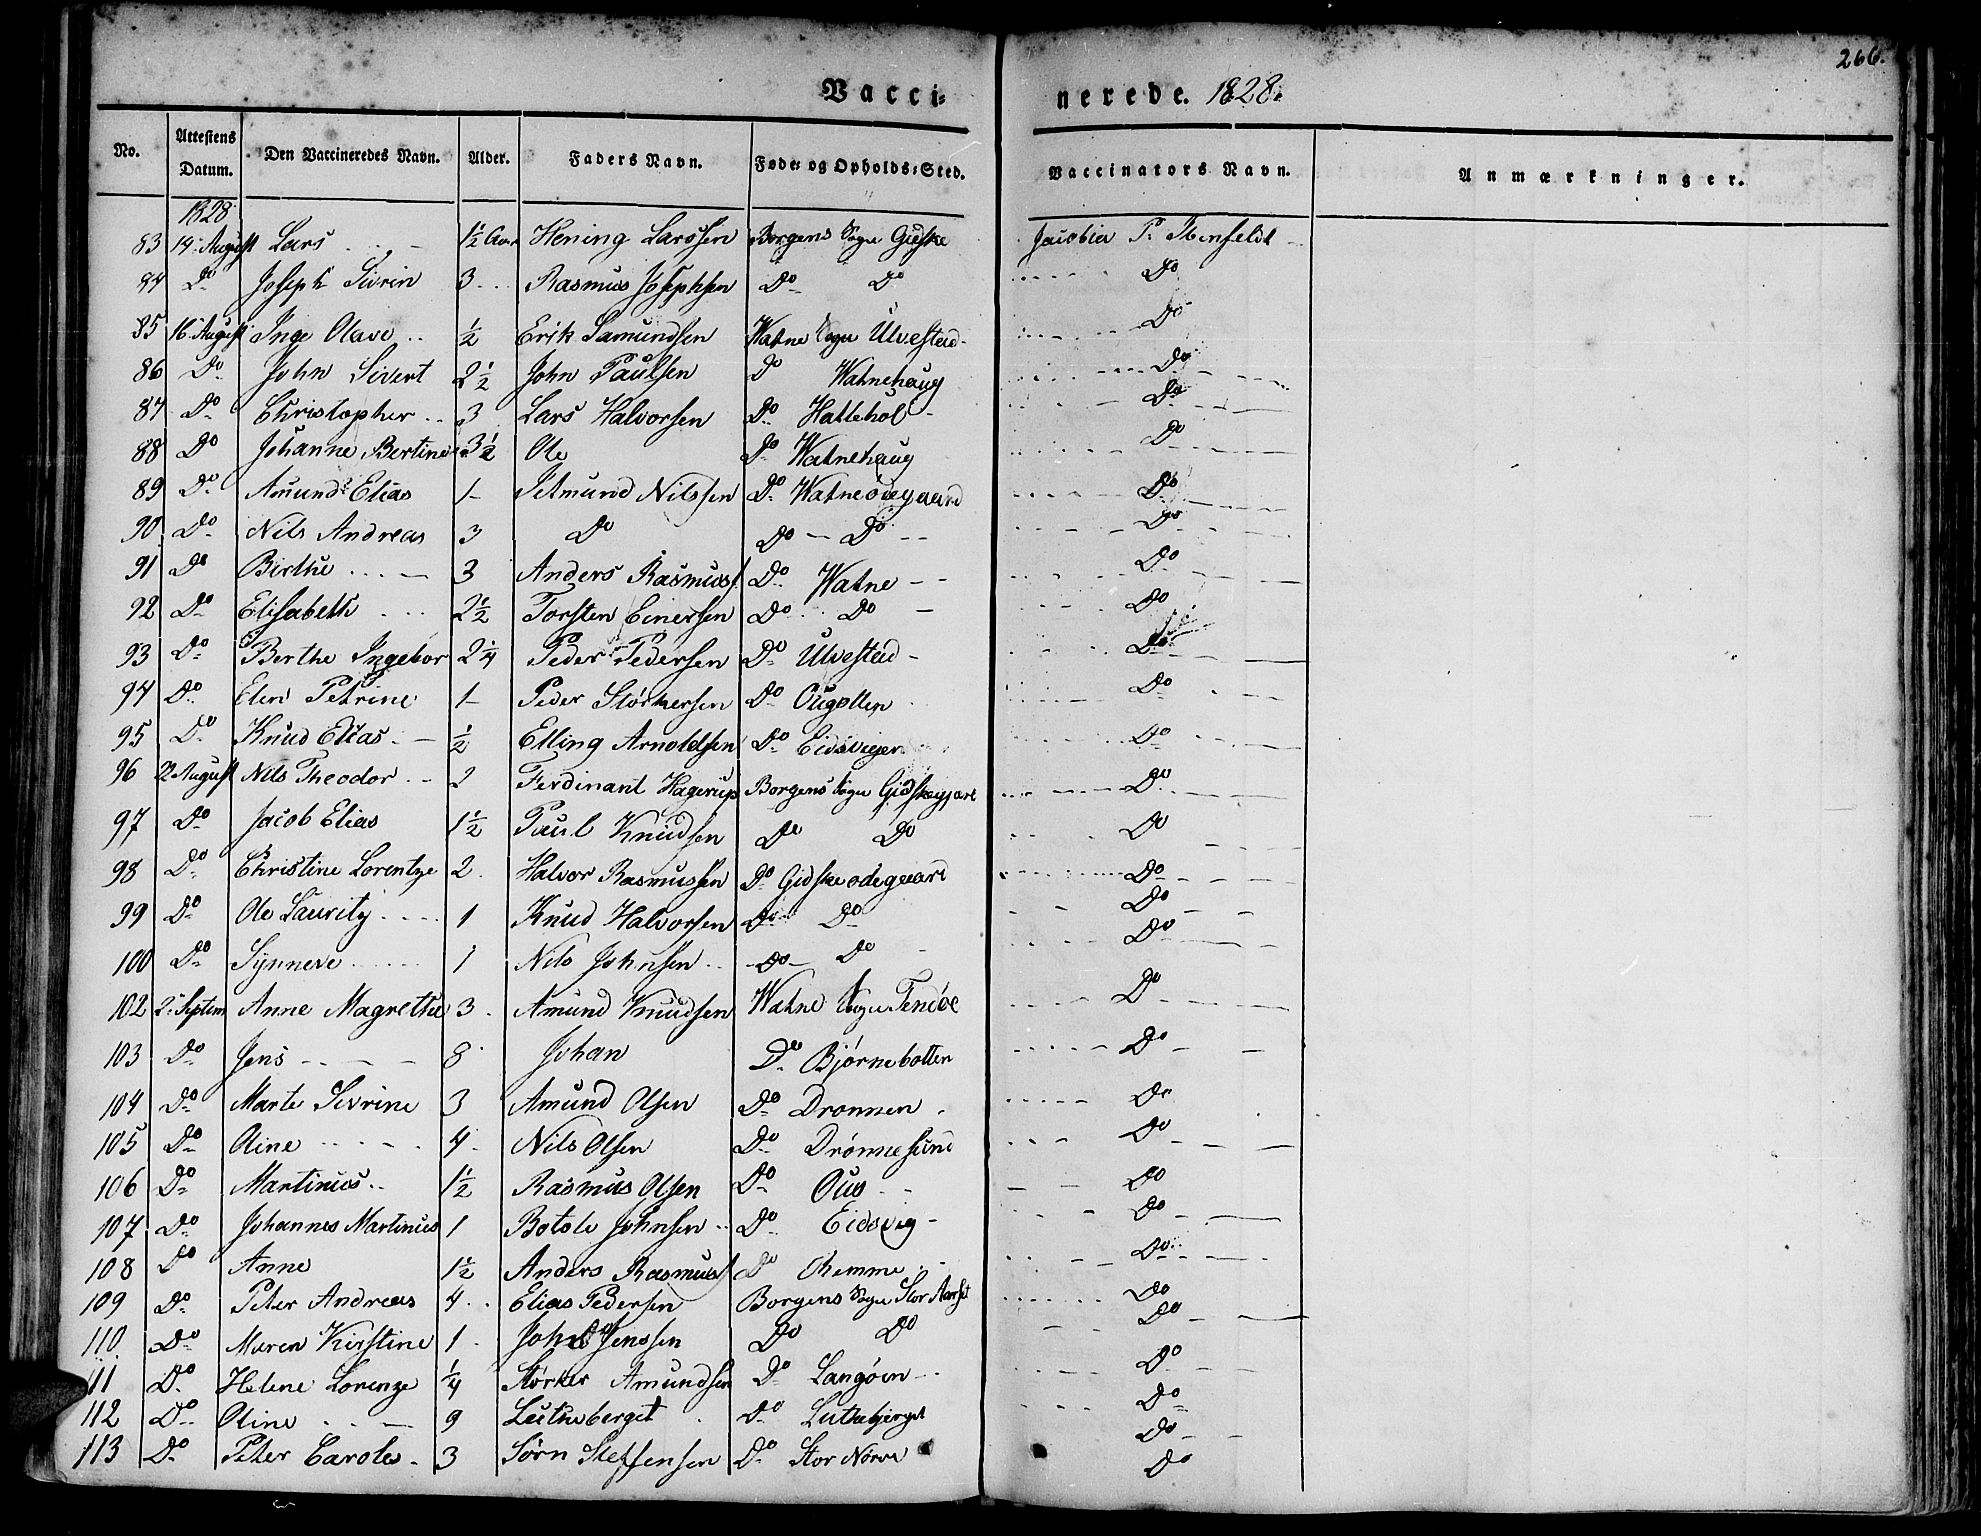 266.
Vacci-nerede. 1828.
No. Attestens Datum. Den Vaccineredes Navn. Alder. Faders Navn. Føde- og Opholds-Sted. Vaccinators Navn. Anmærkninger.
1828.
83 14. August Lars 1½ Aar Hening Larssen Borgens Sogn Gieske Jacobia P.
84 Do Joseph Sivrin 3 Rasmus Josephsen Do Do Do
85 16. August Inge Olave ½ Erik Samundsen Watne Sogn Ulvestad Do
86 Do John Sivert 2½ John Paulsen Do Watnehaug Do
87 Do Christopher 3 Lars Halvorsen Do Hattehol Do
88 Do Johanne Bertine 3½ Ole Do Watnehaug Do
89 Do Amund Elias 1 Jetmund Nilssen Do Watneødegaard Do
90 Do Nils Andreas 3 Do Do Do Do
91 Do Birthe 3 Anders Rasmuss Do Watne Do
92 Do Elisabeth 2½ Torsten Einersen Do Do Do
93 Do Berthe Ingebor 2¼ Peder Pedersen Do Ulvestad Do
94 Do Elen Petrine 1 Peder Størkersen Do Ougotten Do
95 Do Knud Elias ½ Elling Arnoldsen Do Do
96 22 August Nils Theodor 2 Ferdinant Hagerup Borgens Sogn Gidskegjært Do
97 Do Jacob Elias 1½ Paul Knudsen Do Do Do
98 Do Christine Lorentze 2 Halvor Rasmussen Do Gidskeodegaard Do
99 Do Ole Lauritz 1 Knud Halvorsen Do Do Do
100 Do Synneve 1 Nils Johnsen Do Do Do
102 2. Septem Anne Magrethe 3 Amund Knudsen Watne Sogn Tendøe Do
103 Do Jens 8 Johan Do Bjørnebotten Do
104 Do Marte Sevrine 3 Amund Olsen Do Dronnen Do
105 Do Oline 4 Nils Olsen Do Drønnesund Do
106 Do Martinus 1½ Rasmus Olsen Do Ous Do
107 Do Johannes Martinus 1 Botole Johnsen Do Eidsvig Do
108 Do Anne 1½ Anders Rasmuss Do Do
109 Do Peter Andreas 4 Elias Pedersen Borgens Sogn Stor Aarset Do
110 Do Maren Kirstine 1 John Jenssen Do Do Do
11 Do Helene Lorenze ¼ Størker Amundsen Do Langøen Do
112 Do Oline 9 Leetheberget Do Luthebjerget Do
113 Do Peter Carole 3 Sørn Steffensen Do Stor Nørve Do
Do